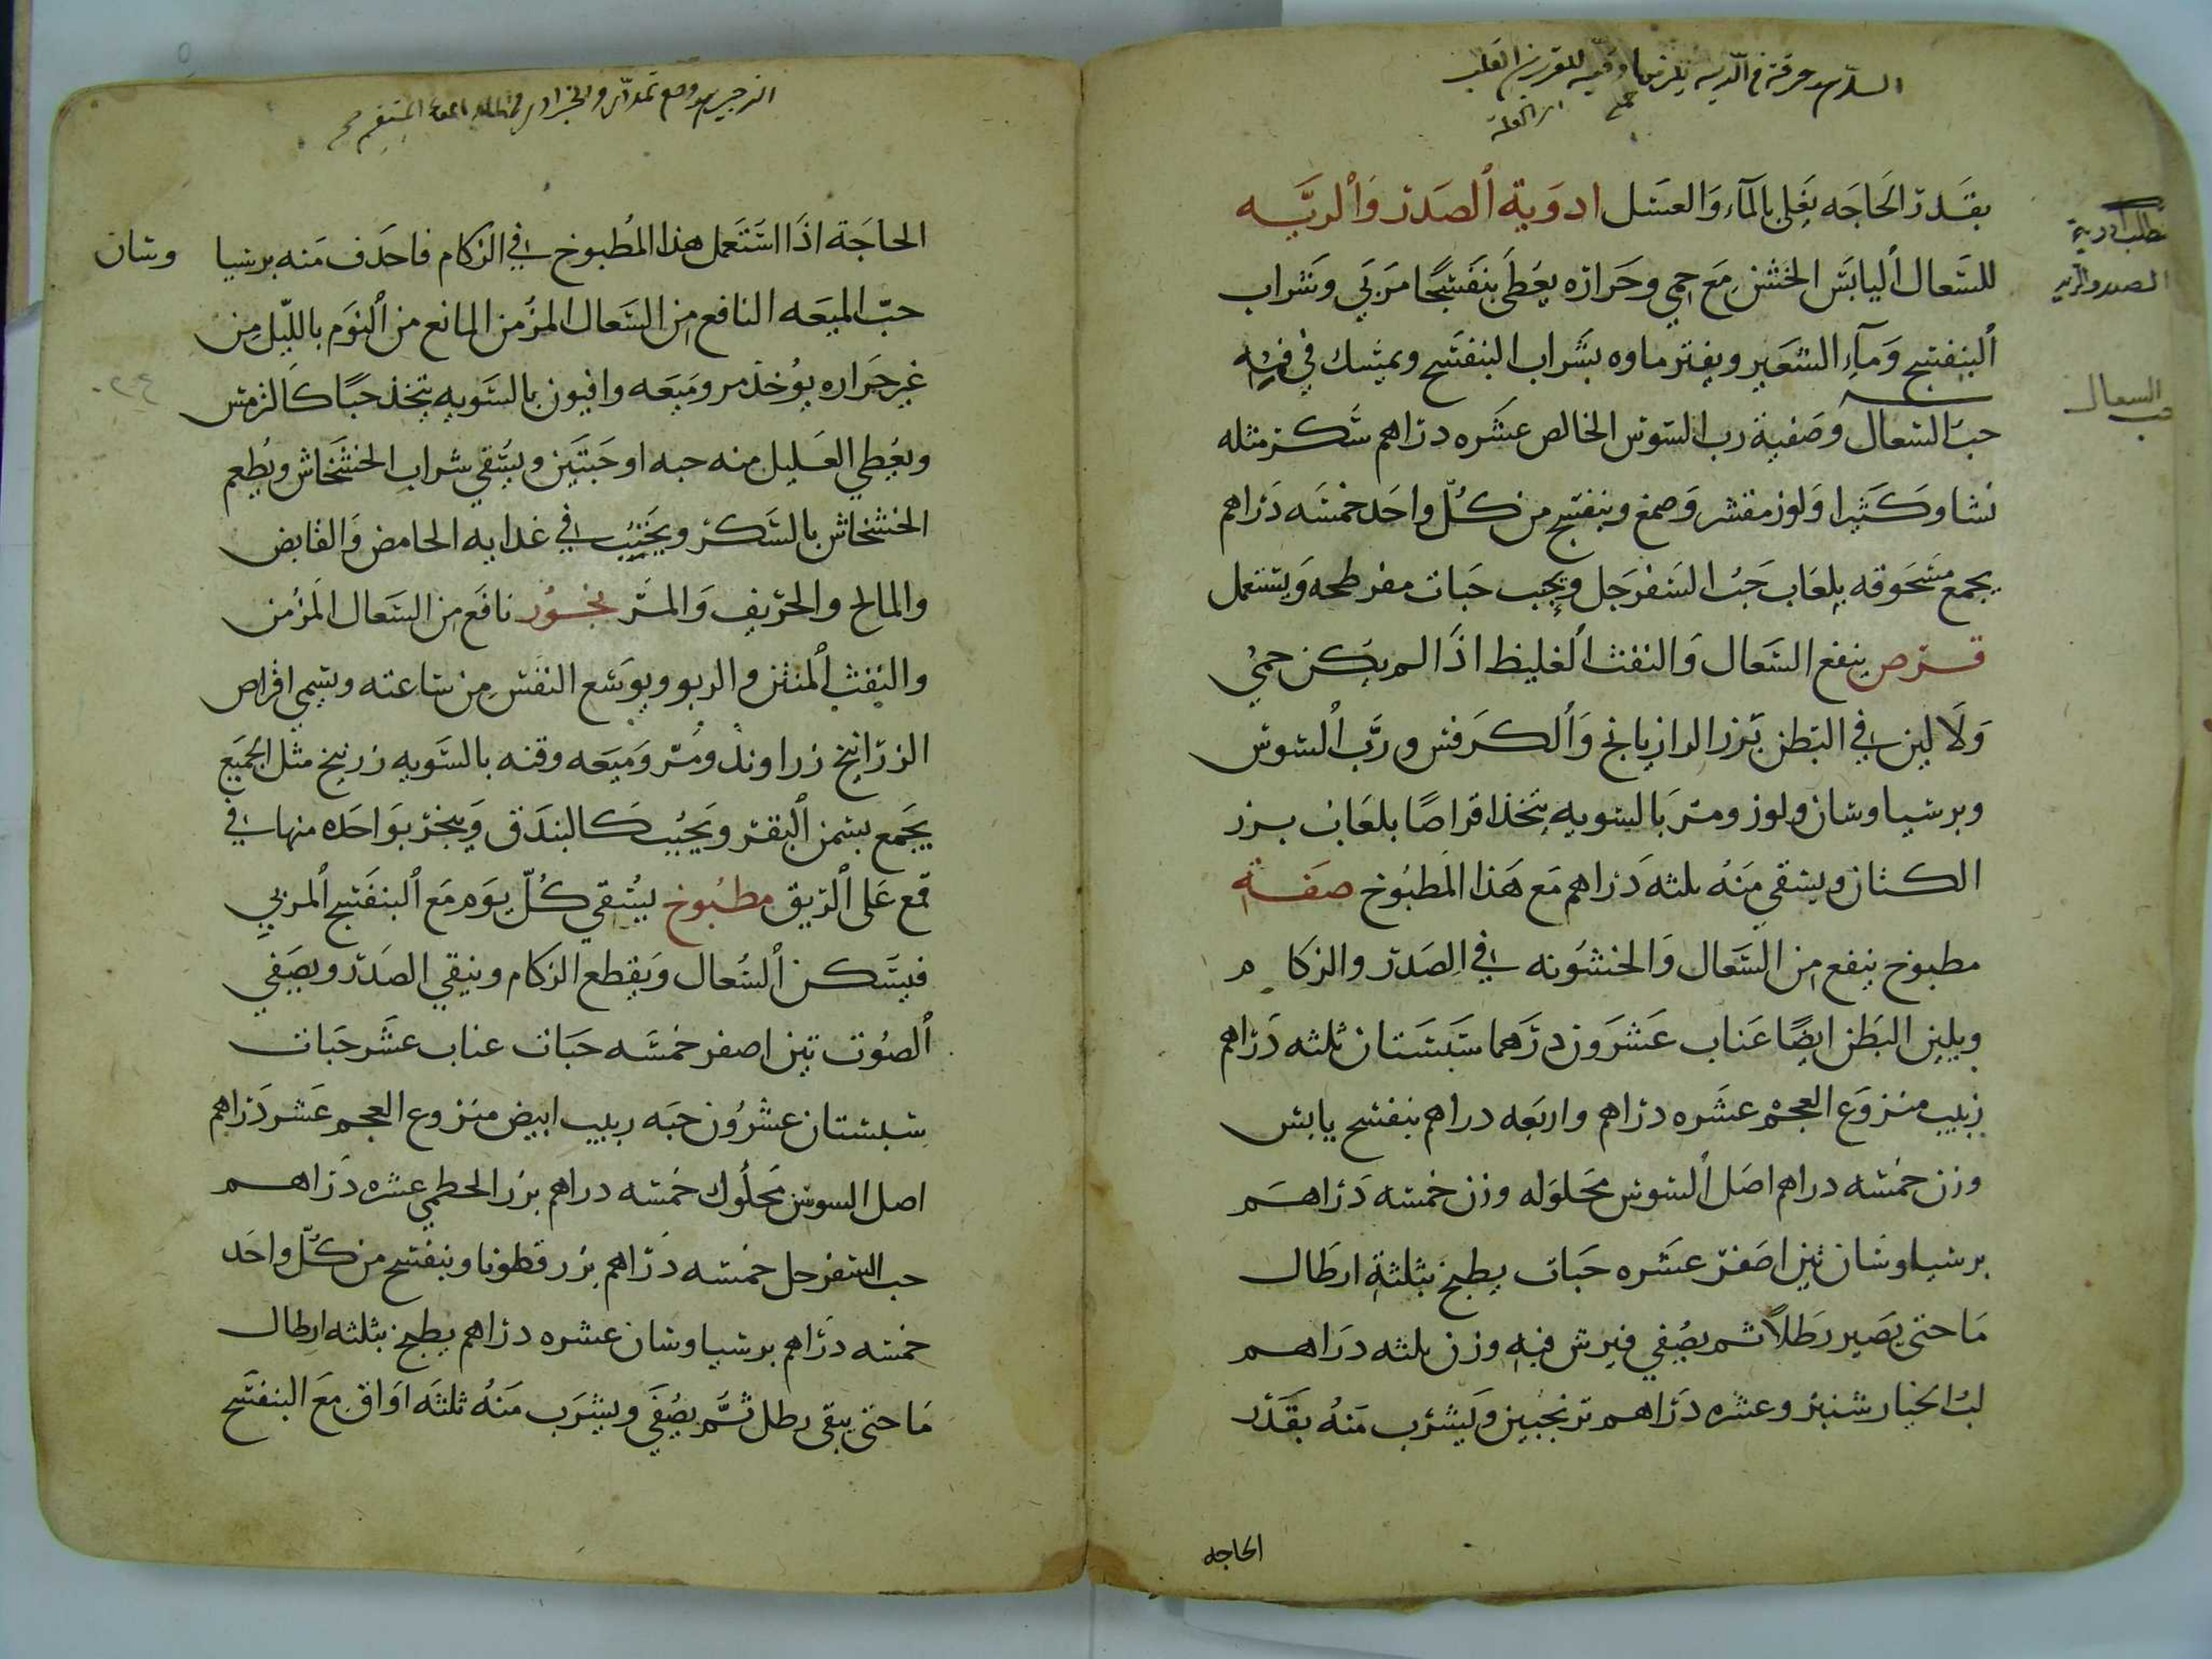 بقدر الحاجه يغلى بالماء والعسل ادوية الصدر والريه
للسعال اليابس الخشن مع حمى وحراره يعطى بنفسجا مربى وشراب
البنفسج وماء الشعير ويفتر ماوه بشراب البنفسج ويمسك في فيه
حب السعال وصفية رب السوس الخالص عشره دراهم سكر مثله
نشا وكثيرا ولوز مقشر وصمغ وبنفسج من كل واحد خمسه دراهم
يجمع مسحوقه بلعاب حب السفرجل ويحبب حبات مفرطحه ويستعمل
قرص ينفع السعال والنفث الغليظ اذا لم يكن حمى
ولا لين في البطن بزر الرازيانج والكرفس ورب السوس
وبرشياوشان ولوز ومر بالسويه يتخذ اقراصا بلعاب بزر
الكتان ويسقى منه ثلثه دراهم مع هذا المطبوخ صفة
مطبوخ ينفع من السعال والخشونه في الصدر والزكام
ويلين البطن ايضا عناب عشرون درهما سبستان ثلثه دراهم
زبيب منزوع العجم عشره دراهم واربعه دراهم بنفسج يابس
وزن خمسه دراهم اصل السوس محلوله وزن خمسه دراهم
برشياوشان تين اصفر عشره حبات يطبخ بثلثة ارطال
ما حتى يصير رطلا ثم يصفي فيرش فيه وزن ثلثه دراهم
لب الخيار شنبر وعشره دراهم ترنجبين ويشرب منه بقدر
الحاجه
تطلب ادوية
الصدر والريه
حب السعال
الحاجة اذا استعمل هذا المطبوخ في الزكام فاحذف منه برشيا وشان
حب الميعه النافع من السعال المزمن المانع من النوم بالليل من
غير حراره يوخذ مر وميعه وافيون بالسويه يتخذ حبا كالترمس
ويعطي العليل منه حبه او حبتين ويسقي شراب الخشخاش ويطعم
الخشخاش بالسكر ويجنب في غدايه الحامض والقابض
والمالح والحريف والمر بخور نافع من السعال المزمن
والنفث المنتن والربو ويوسع النفس من ساعته ويسمي اقراص
الزرانيخ زراوند ومر وميعه وقنه بالسويه زرنيخ مثل الجميع
يجمع بسمن البقر ويحبب كالبندق ويبخر بواحده منها في
قمع على الريق مطبوخ يسقي كل يوم مع البنفسج المربي
فيسكن السعال ويقطع الزكام وينقي الصدر ويصفي
الصوت تين اصفر خمسه حبات عناب عشر حبات
سبستان عشرون حبه زبيب ابيض منزوع العجم عشر دراهم
اصل السوس محلوك خمسه دراهم بزر الخطمي عشره دراهم
حب السفرجل خمسه دراهم بزر قطونا وبنفسج من كل واحد
خمسه دراهم برشياوشان عشره دراهم يطبخ بثلثه ارطال
ما حتى يبقى رطل ثم يصفي ويشرب منه ثلثه اواق مع البنفسج